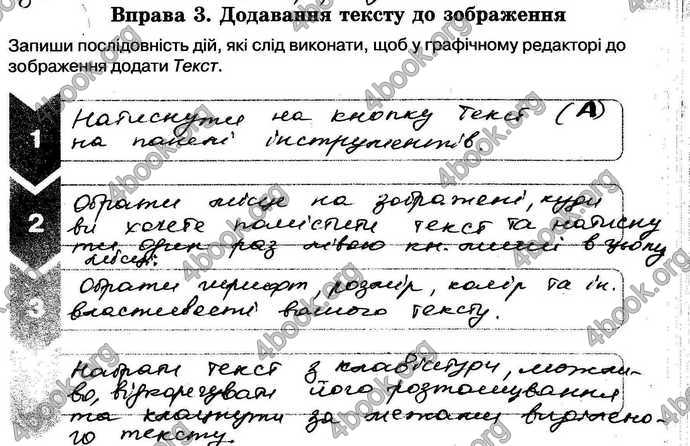 Вправа 3. Додавання тексту до зображення
Запиши послідовність дій, які слід виконати, щоб у графічному редакторі до
зображення додати Текст.
1
Натиснути на кнопку Текст (А)
на панелі інструментів.
2
Обрати місце на зображені, куди
ви хочете помістити текст та натисну
ти один раз лівою кн. миші в цьому
місці.
3
Обрати шрифт, розмір, колір та ін.
властивості вашого тексту.
Набрати текст з клавіатури, можли-
во, відкорегувати його розташування
та клацнути за межами виділено-
го тексту.
4book.org